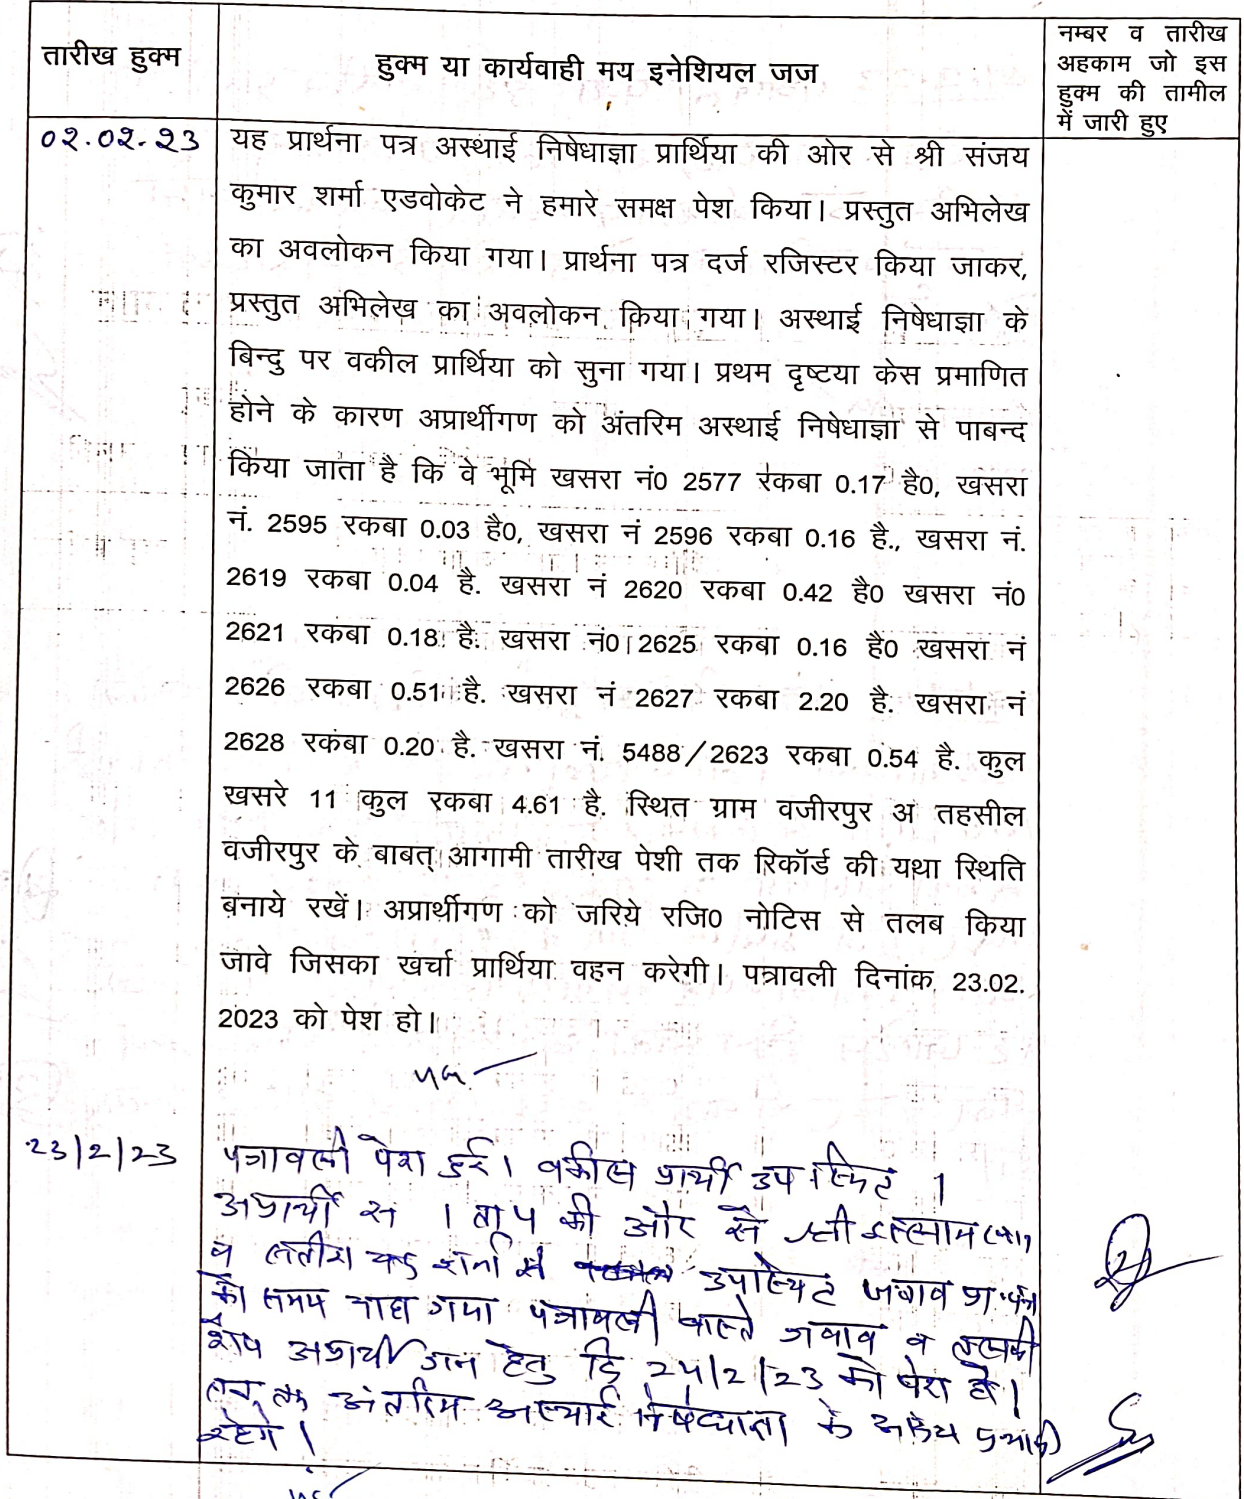 तारीख हुक्म
हुक्म या कार्यवाही मय इनेशियल जज
नम्बर व तारीख
अहकाम जो इस
हुक्म की तामील
में जारी हुए
02.02.23
यह प्रार्थना पत्र अस्थाई निषेधाज्ञा प्रार्थिया की ओर से श्री संजय
कुमार शर्मा एडवोकेट ने हमारे समक्ष पेश किया। प्रस्तुत अभिलेख
का अवलोकन किया गया। प्रार्थना पत्र दर्ज रजिस्टर किया जाकर,
प्रस्तुत अभिलेख का अवलोकन किया गया। अस्थाई निषेधाज्ञा के
बिन्दु पर वकील प्रार्थिया को सुना गया। प्रथम दृष्टया केस प्रमाणित
होने के कारण अप्रार्थीगण को अंतरिम अस्थाई निषेधाज्ञा से पाबन्द
किया जाता है कि वे भूमि खसरा नं0 2577 रकबा 0.17 है0, खसरा
नं. 2595 रकबा 0.03 है0, खसरा नं 2596 रकबा 0.16 है., खसरा नं.
2619 रकबा 0.04 है. खसरा नं 2620 रकबा 0.42 है0 खसरा नं0
2621 रकबा 0.18 है. खसरा नं0 2625 रकबा 0.16 है0 खसरा नं
2626 रकबा 0.51 है. खसरा नं 2627 रकबा 2.20 है. खसरा नं
2628 रकबा 0.20 है. खसरा नं. 5488/2623 रकबा 0.54 है. कुल
खसरे 11 कुल रकबा 4.61 है. स्थित ग्राम वजीरपुर अ तहसील
वजीरपुर के बाबत् आगामी तारीख पेशी तक रिकॉर्ड की यथा स्थिति
बनाये रखें। अप्रार्थीगण को जरिये रजि0 नोटिस से तलब किया
जावे जिसका खर्चा प्रार्थिया वहन करेगी। पत्रावली दिनांक 23.02.
2023 को पेश हो।
23/2/23
पत्रावली पेश हुई। वकील प्रार्थी उपस्थित।
अप्रार्थी सं 1 की ओर से श्री
व सतीश चन्द शर्मा उपस्थित जवाब प्रा. पत्र
को समय चाहा गया पत्रावली वास्ते जवाब व तलबी
शेष अप्रार्थी गन हेतु दि 24/2/23 को पेश हो।
तब तक अंतरिम अस्थाई निषेधाज्ञा के आदेश प्रभावी
रहेगे।